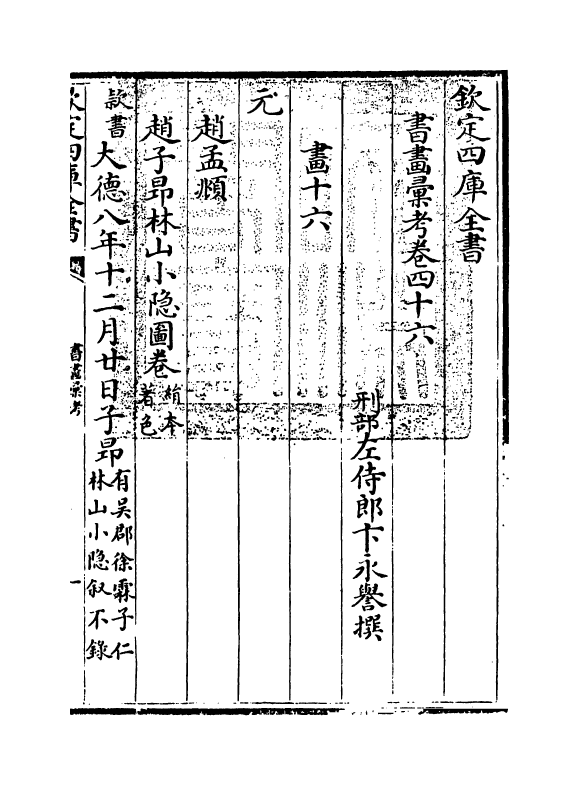 欽定四庫全書
書畫彚考卷四十六
刑部左侍郎卞永譽撰
畫十六
元
趙孟頫
趙子昂林山小隱圖卷
絹本
著色
款書
大德八年十二月廿日子昂
有吳郡徐霖子仁
林山小隐叙不錄
欽定四庫全書
書畫彚考
一